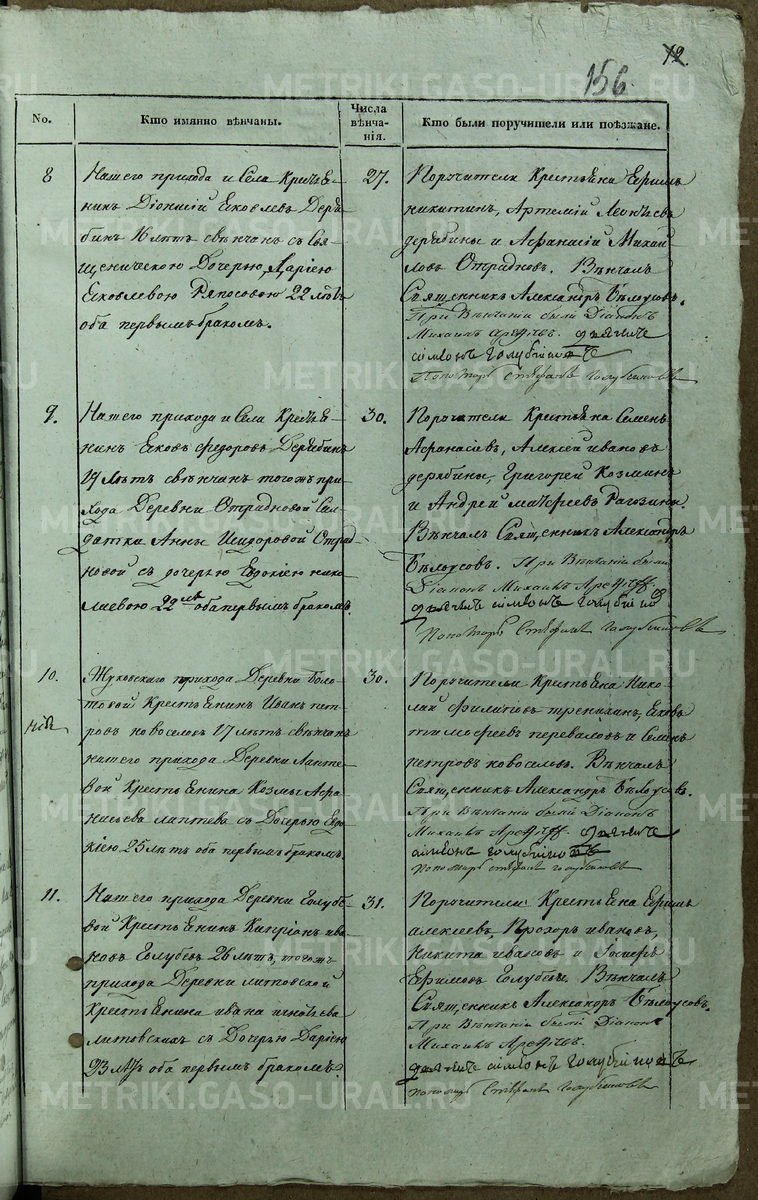 12.
156.
No.
Кто имянно вѣнчаны.
Числа
вѣнча-
нія.
Кто были поручители или поѣзжане.
8
Нашего прихода и Села Кресть Е-
нинъ Діонисій Ековлевъ Деря-
бинъ 16 лѣтъ свѣнчанъ съ Свя-
щеническою Дочерью, Даріею
Ековлевою Ряпосовою 22 лѣтъ
оба первымъ бракомъ.
27.
Поручители Крестьена Ефимъ
никитинъ, Артемій Леонтьевъ
дерябины и Афанасій Михай-
ловъ Отрадновъ. Вѣнчалъ
Священникъ Александръ Бѣлоусовъ.
При Вѣнчаніи были Діаконъ
Михаилъ Арефьевъ. дьячекъ
симіонъ голубчиковъ
Пономарь Стефанъ голубчиковъ
9.
Нашего прихода и Села Крестье-
нинъ Ековъ федоровъ Дерябинъ
17 лѣтъ свѣнчанъ тогожъ при-
хода Деревни Отрадновой Сол-
датки Анны Исидоровой Отрад-
новой съ дочерью Евдокіею нико-
лаевою 22 лѣтъ оба первымъ бракомъ.
30.
Поручители Крестьена Семенъ
Афанасіевъ, Алексій ивановъ
дерябины, Григорей Козминъ
и Андрей матфеевъ Рагозины.
Вѣнчалъ Священникъ Александръ
Бѣлоусовъ. При Вѣнчаніи были
Діаконъ Михаилъ Арефьев.
дьячекъ симіонъ голубчиков
Пономарь Стефанъ голубчиковъ
10.
Жуковскаго прихода Деревни боло-
товой Крестьенинъ Иванъ пет-
ровъ новоселовъ 17 лѣтъ свѣнчанъ
нашего прихода Деревни Лапте-
вой Крестьенина Козмы Афа-
насьева лаптева съ Дочерью Евдо-
кіею 25 лѣтъ оба первымъ бракомъ.
30.
Поручители Крестьена Нико-
лай филиповъ тренихинъ, Ековъ
тимофеевъ переваловъ и Семенъ
петровъ новоселовъ. Вѣнчалъ
Священникъ Александръ Бѣлоусовъ.
При Вѣнчаніи были Діаконъ
Михаилъ Арефьев. дьячекъ
симіонъ голубчиковъ
пономарь стефанъ голубчиковъ
11.
Нашего прихода Деревни Голубе-
вой Крестьенинъ Кипріонъ ива-
новъ Голубевъ 26 лѣтъ, тогожъ
прихода Деревни литовской
Крестьенина ивана игнатьева
литовскихъ съ Дочерью Даріею
23 лѣтъ оба первымъ бракомъ.
31.
Поручители: Крестьена Ефимъ
алексеевъ, Прохоръ ивановъ,
Никита ивановъ и
Ефимовъ Голубевы. Вѣнчалъ
Священникъ Александръ Бѣлоусовъ.
При Вѣнчаніи были Діаконъ
Михаилъ Арефьевъ.
дьячекъ симіонъ голубчиковъ
пономарь Стефанъ Голубчиковъ
METRIKI.GASO-URAL.RU